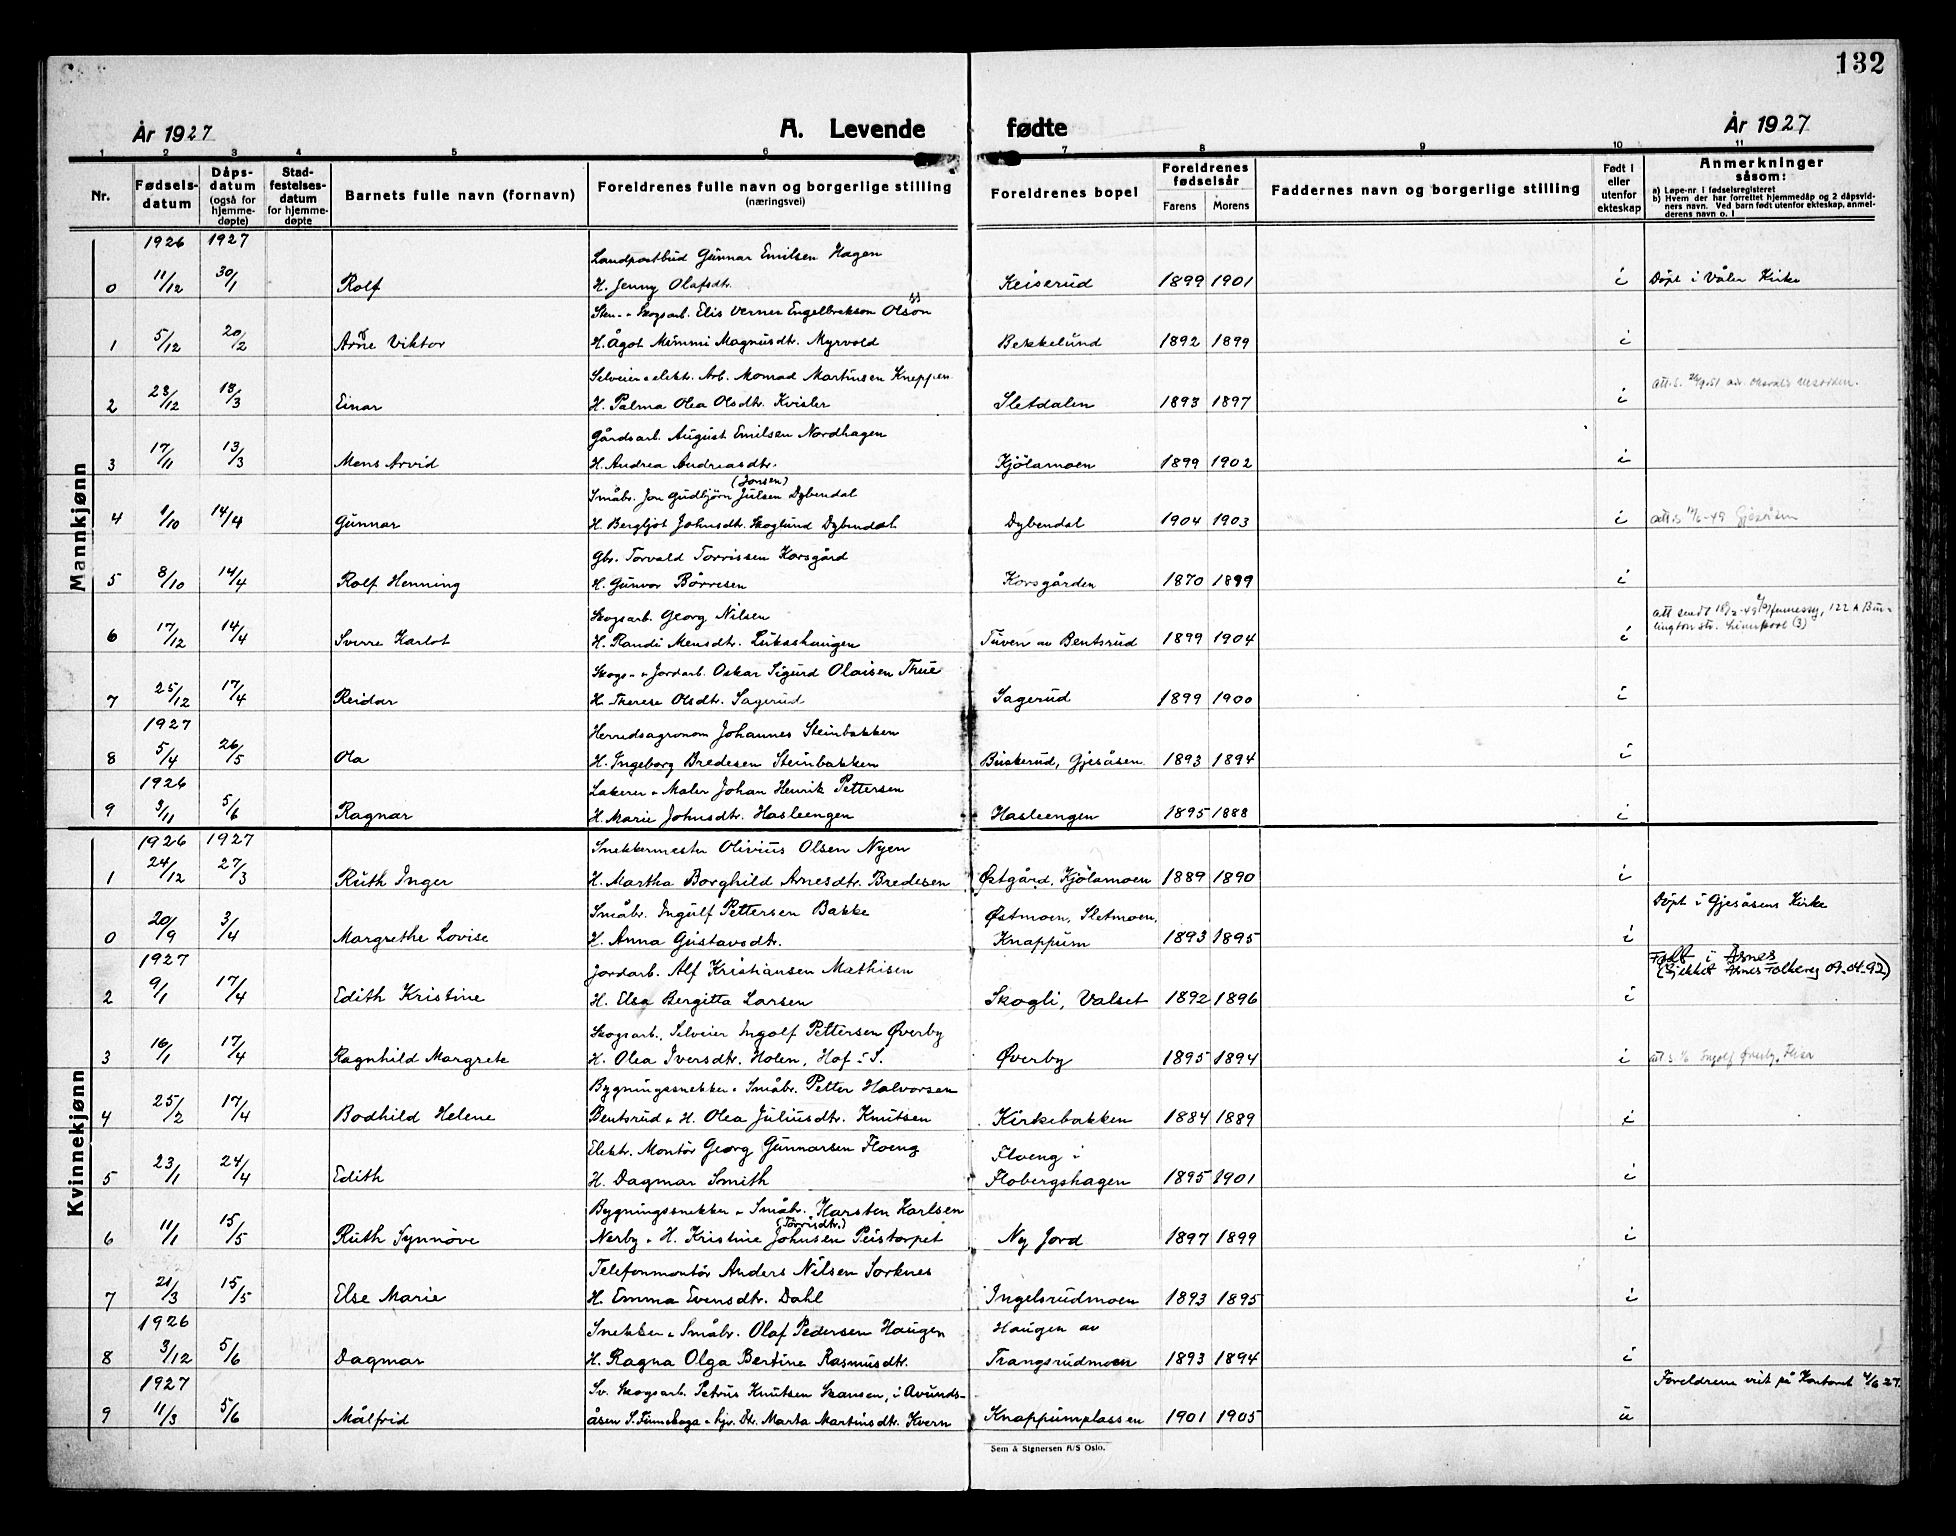 132
År 1927
A. Levende fødte
År 1927
1 2 3 4 5 6 7 8 9 10 11
Nr.
Fødsels-
datum
Dåps-
datum
(også for
hjemme-
døpte)
Stad-
festelses-
datum
for hjemme-
døpte
Barnets fulle navn (fornavn)
Foreldrenes fulle navn og borgerlige stilling
(næringsvei)
Foreldrenes bopel
Foreldrenes
fødselsår
Farens Morens
Faddernes navn og borgerlige stilling
Født i
eller
utenfor
ekteskap
Anmerkninger
såsom:
a) Løpe-nr. i fødselsregisteret
b) Hvem der har forrettet hjemmedåp og 2 dåpsvid-
ners navn. Ved barn født utenfor ekteskap, anmel-
derens navn o. l
Mannkjønn
1926 1927
Landpostbud Gunnar Emilsen Hagen
0 11/12 30/1 Rolf H. Jenny Olafsdtr. Keiserud 1899 1901 i Döpt i Våler Kirke
Sten- & Skogsarb. Elis Verner Engelbrekson Olson
1 5/12 20/2 Arne Viktor H. Ågot Mimmi Magnusdtr. Myrvold Bekkelund 1892 1899 i
Selveier & elektr. Arb. Momad Martinsen Kneppen
2 28/12 18/3 Einar H. Palma Olea Olsdtr. Kvisler Sletdalen 1893 1897 i
Gårdsarb. August Emilsen Nordhagen
3 17/11 13/3 Mens Arvid H. Andrea Andreasdtr. Kjölamoen 1899 1902 i
(Jonsen)
Småbr. Jon Gudbjörn Julsen Dybendal
4 1/10 14/4 Gunnar H. Bergljot Johnsdtr. Skoglund Dybendal Dybendal 1904 1903 i att. s -49 Gjesåsen
Gbr. Torvald Torrissen Korsgård
5 8/10 14/4 Rolf Henning H. Gunvor Börresen Korsgården 1870 1899 i
Skogsarb. Georg Nilsen
att sendt -49 Hennessy, 122 A Bur-
lington str. Liverpool (3)
6 17/12 14/4 Sverre Karlot H. Randi Mensdtr. Lukashaugen Tuven av Bentsrud 1899 1904 i
Skogs- & Jordarb. Oskar Sigurd Olaisen Thue
7 25/12 17/4 Reidar H. Therese Olsdtr. Sagerud Sagerud 1899 1900 i
1927
Herredsagronom Johannes Steinbakken
8 5/4 26/5 Ola H. Ingeborg Bredesen Steinbakken Buskerud, Gjesåsen 1893 1894 i
1926
Lakerer & Maler Johan Henrik Pettersen
9 3/11 5/6 Ragnar H. Marie Johnsdtr. Hasleengen Hasleengen 1895 1888 i
Kvinnekjønn
1926 1927
Snekkermester Olivius Olsen Nyen
1 24/12 27/3 Ruth Inger H. Martha Borghild Arnesdtr. Bredesen Østgård, Kjölamoen 1889 1890 i
Småbr. Ingulf Pettersen Bakke Østmoen, Sletmoen, Döpt i Gjesåsens Kirke
0 20/9 3/4 Margrethe Lovise H. Anna Gustavsdtr. Knappum 1893 1895 i
1927
Jordarb. Alf Kristiansen Mathisen
Født i Åsnes
(Sjekket Åsnes Folkereg 09.04-92)
2 9/1 17/4 Edith Kristine H. Elsa Bergitta Larsen Skogli, Valset 1892 1896 i
Skogsarb., Selveier Ingolf Pettersen Øverby
3 16/1 17/4 Ragnhild Margrete H. Olea Iversdtr. Holen, Hof - S. Øverby 1895 1894 i att s. % Ingolf Øverby, Flisa
Bygningssnekker & Småbr. Petter Halvorsen
4 25/2 17/4 Bodhild Helene Bentsrud & H. Olea Juliusdtr. Knutsen Kirkebakken 1884 1889 i
Elektr. Montör Georg Gunnarsen Floeng Floeng i
5 23/1 24/4 Edith H. Dagmar Smith Flobergshagen 1895 1901 i
Bygningssnekker & Småbr. Karsten Karlsen
(Torrisdtr.)
6 11/1 15/5 Ruth Synnöve Nerby & H. Kristine Johnsen Peistorpet Ny Jord 1897 1899 i
Telefonmontör Anders Nilsen Sorknes
7 21/3 15/5 Else Marie H. Emma Evensdtr. Dahl Ingelsrudmoen 1893 1895 i
1926
Snekker & Småbr. Olaf Pedersen Haugen Haugen av
8 3/12 5/6 Dagmar H. Ragna Olga Bertine Rasmusdtr. Trangsrudmoen 1893 1894 i
1927
Sv. Skogsarb. Petrus Knutsen Skansen, i Avunds- Foreldrene viet på Kontoret 4/6 27.
9 11/3 5/6 Målfrid åsen S. Finnskoga & Marta Martinsdtr. Kvern Knappumplassen 1901 1905 u
Sem & Stenersen A/S Oslo.